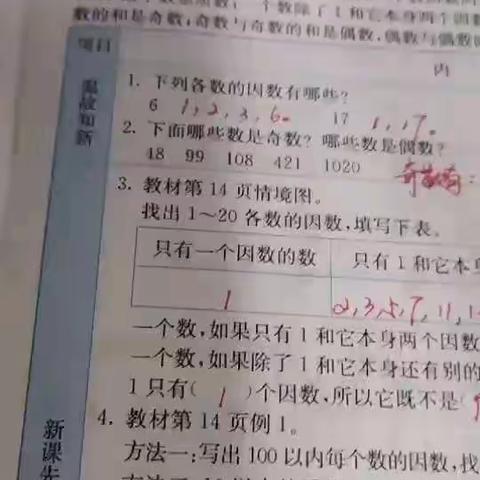 数的和是奇数,奇数与奇数的和是偶数,偶数与偶数
项目
内
温故知新
1. 下列各数的因数有哪些?
6 1,2,3,6。 17 1,17。
2. 下面哪些数是奇数? 哪些数是偶数?
48 99 108 421 1020
3. 教材第 14 页情境图。
找出 1～20 各数的因数,填写下表。
只有一个因数的数 只有 1 和它本身
1 2,3,5,7,11,1
一个数,如果只有 1 和它本身两个因数
一个数,如果除了 1 和它本身还有别的
1 只有( 1 )个因数,所以它既不是(
4. 教材第 14 页例 1。
新课先
方法一:写出 100 以内每个数的因数,找